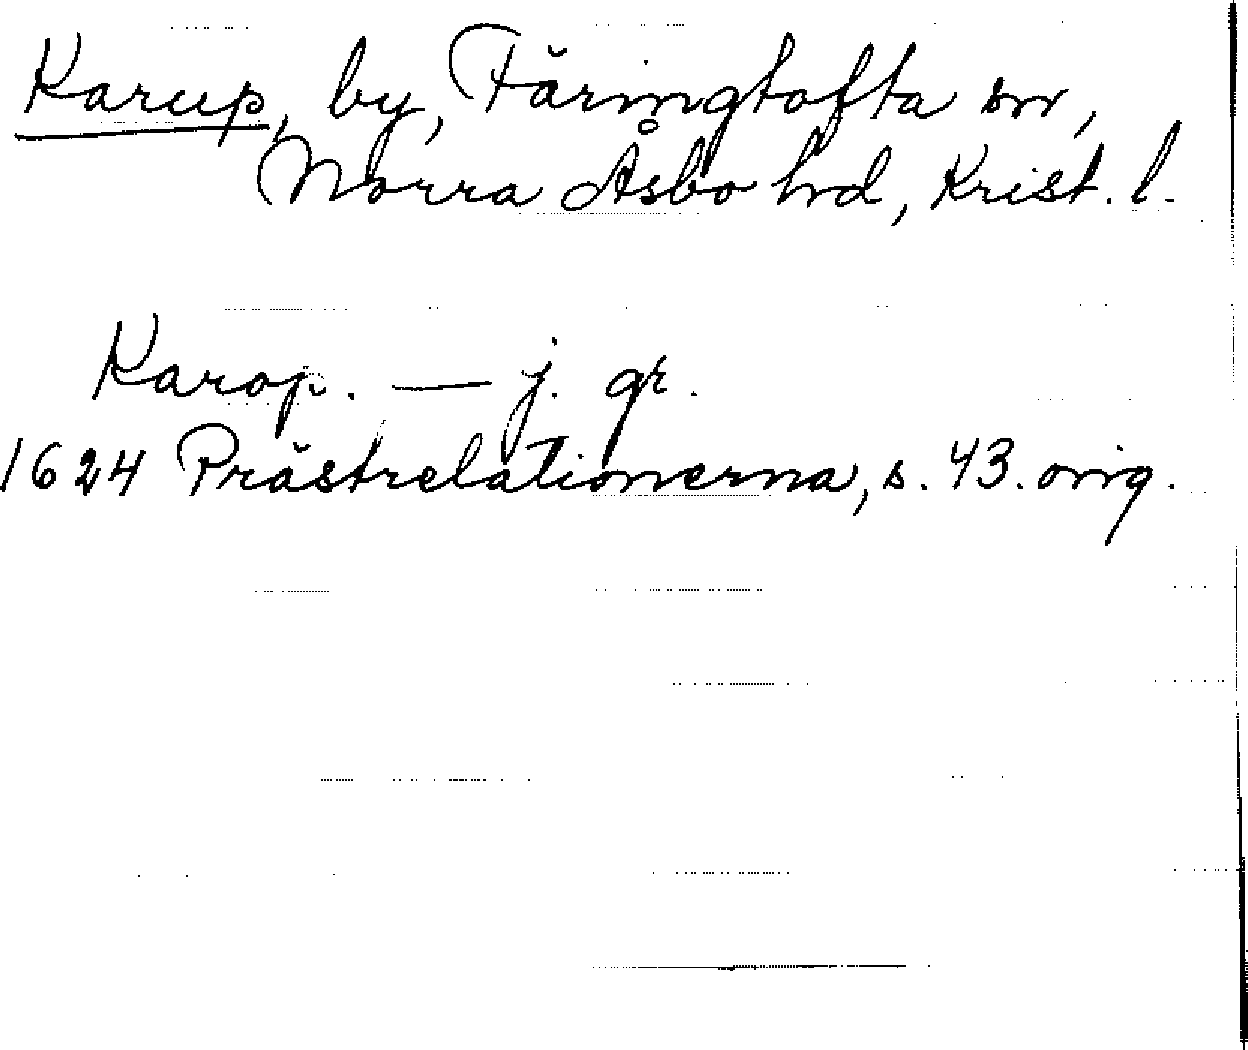 Karup, by, Färingtofta sn,
Norra Åsbo hd, Krist. l.
Karop. — j. gr.
1624 Prästrelationerna, s. 43. orig.